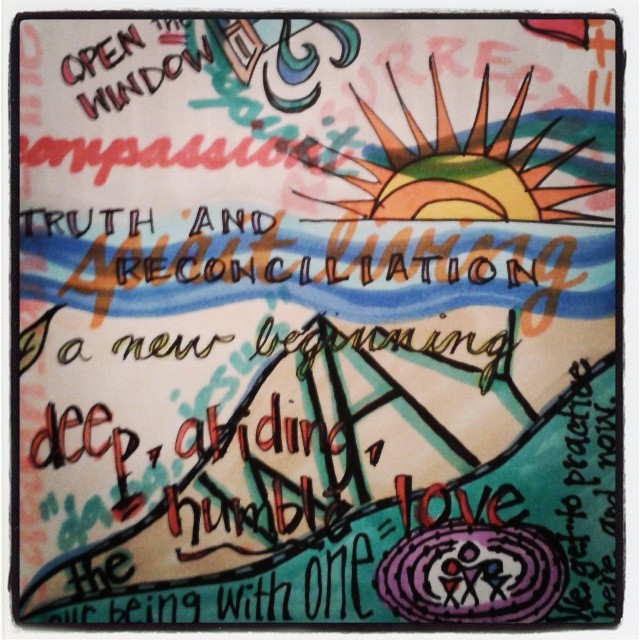 OPEN the
WINDOW
Spirit
compassion
TRUTH AND
spirit living
RECONCILIATION
a new beginning
Jesus
deep, abiding,
humble love
the
WAY
our being with one =
We get to practice
here and now.